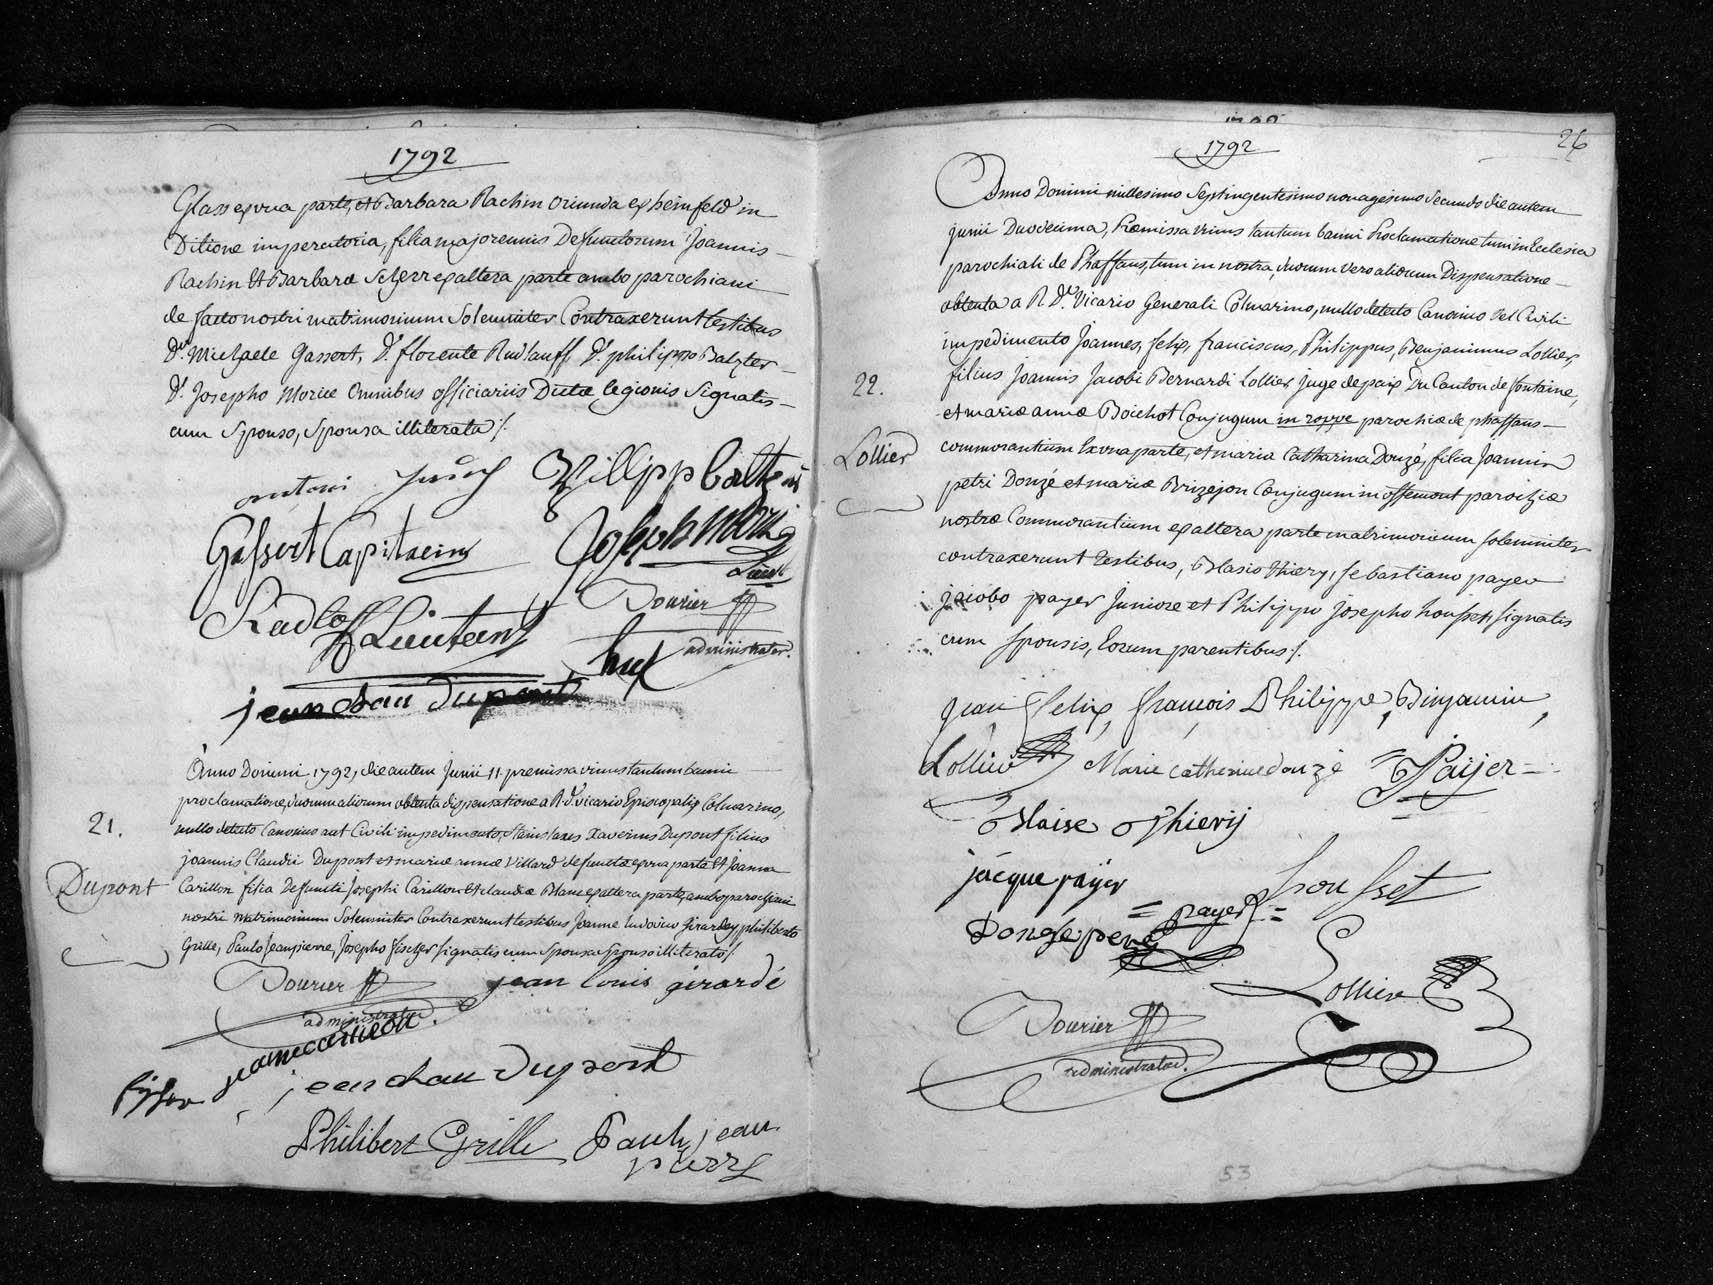 1792
Glass ex una parte, et Barbara Rachin oriunda ex heinfeld in
Ditione imperatoria, filia majorennis Defunctorum Joannis
Rachin Et Barbaræ Scherr ex altera parte ambo parochiani
de facto nostri matrimonium Solemniter Contraxerunt testibus
D. Michaele Gassert, D. florente Rudlauff D. philippo Baltzer
D. Josepho Moriæ Omnibus officiariis Dictæ legionis Signatis
cum Sponso, Sponsa illiterata /.
antoni
Gassert Capitaein
Joseph Mori
Lieut
Lieutenant
Bourier
administrator.
hux
jean chau Dupont
21.
Dupont
Anno Domini 1792, die autem Junii 11 premissa unius tantum banni
proclamatione, duorum aliorum obtenta dispensatione a R.d. vicario Episcopali Colmarino,
nullo detecto Canonico aut Civili impedimento, Stanislaus Xaverius Dupont filius
joannis Claudii Dupont et mariæ annæ Villard defunctæ ex una parte Et Joanna
Carillon filia Defuncti Josephi Carillon Et claudiæ Blanc ex altera parte, ambo parochiani
nostri Matrimonium Solemniter Contraxerunt testibus Joanne ludovico Girardey philiberto
Grille, Paulo Jeanpierre, Josepho fischer Signatis cum Sponsa Sponso illiterato /.
Bourier jean louis girardé
administrator.
jeanne carilleon
jean chau Dupont
Philibert Grille Paul jean
pierre
52
1792
26
22.
Lollier
Anno Domini millesimo Septingentesimo nonagesimo Secundo die autem
junii Duodecima, Præmissa unius tantum banni Proclamatione tum in Ecclesia
parochiali de Phaffans, tum in nostra, duorum vero aliorum Dispensatione
obtenta a R.D. Vicario Generali Colmarino, nullo detecto Canonico vel Civili
impedimento Joannes, felix, franciscus, Philippus, Benjaminus Lollier,
filius Joannis Jacobi Bernardi Lollier Juge de paix Du Canton de fontaine,
et mariæ annæ Boichot Conjugum in roppe parochiæ de phaffans
commorantium Ex una parte, et maria Catharina Donzé, filia Joannis
petri Donzé et mariæ Brizejon Conjugum in offemont parochiæ
nostræ Commorantium ex altera parte matrimonium solemniter
contraxerunt Testibus, Blasio thiery, sebastiano payer
jacobo payer Juniore et Philippo Josepho housset, signatis
cum Sponsis, Eorum parentibus /.
jean felix, françois Philippe, Binjamin,
Lollier Marie catherine donzé Paijer
Blaise Thierij
jâcque payer housset
payer
Donzé pere
Lollier
Bourier
administrator.
53